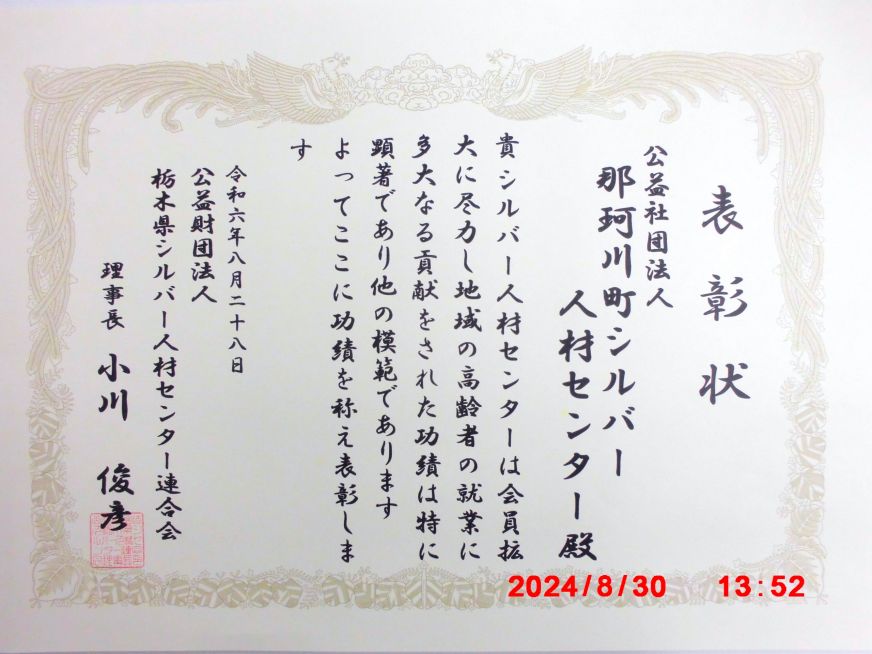 表彰状
公益社団法人
那珂川町シルバー
人材センター殿
貴シルバー人材センターは会員拡
大に尽力し地域の高齢者の就業に
多大なる貢献をされた功績は特に
顕著であり他の模範であります
よってここに功績を称え表彰しま
す
令和六年八月二十八日
公益財団法人
栃木県シルバー人材センター連合会
理事長 小川 俊彦
2024/8/30 13:52